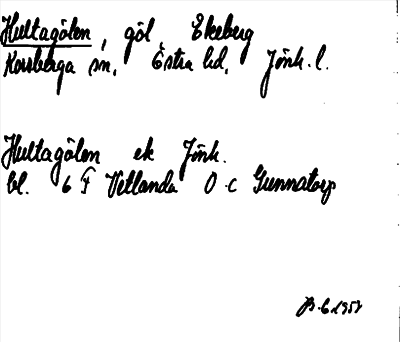 Hultagölen, göl, Ekeberg
Korsberga sn. Östra hd. Jönk. l.
Hultagölen ek Jönk.
bl. 6 F Vetlanda O c Gunnatorp